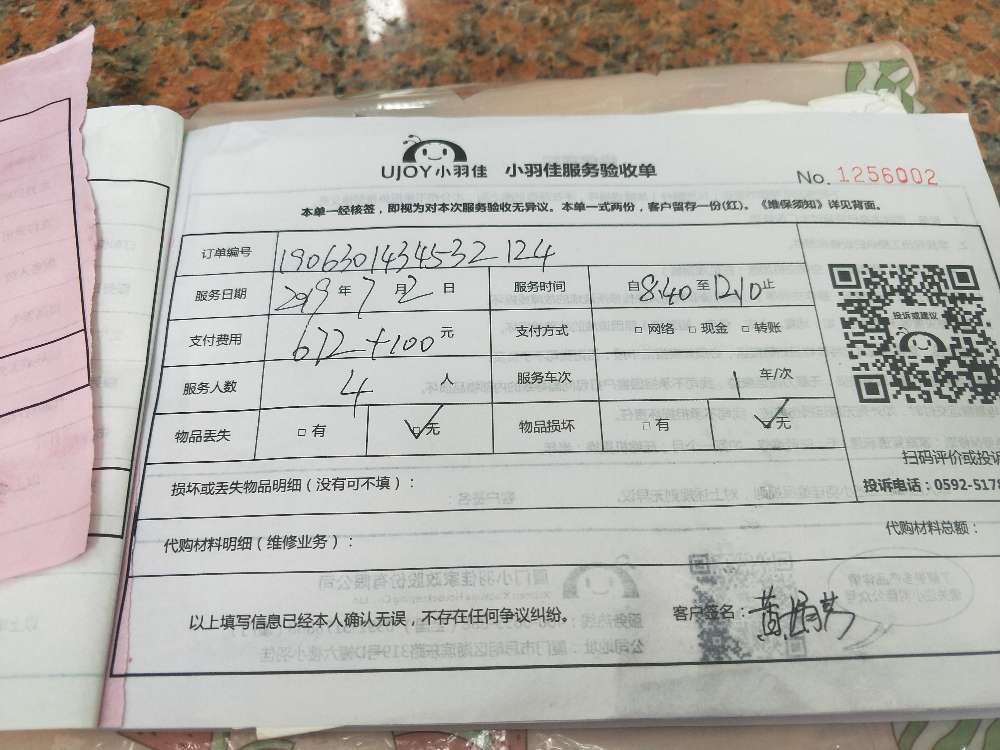 UJOY小羽佳 小羽佳服务验收单
No. 1256002
本单一经核签，即视为对本次服务验收无异议。本单一式两份，客户留存一份(红)。《维保须知》详见背面。
订单编号 1906301434532124
服务日期 2019年7月2日 服务时间 自8:40至12:10止
支付费用 672+100元 支付方式 □网络 □现金 □转账
投诉或建议
服务人数 4人 服务车次 1车/次
物品丢失 □有 ☑无 物品损坏 □有 ☑无
扫码评价或投诉
损坏或丢失物品明细（没有可不填）：
投诉电话：0592-5178
代购材料明细（维修业务）： 代购材料总额：
以上填写信息已经本人确认无误，不存在任何争议纠纷。 客户签名：黄